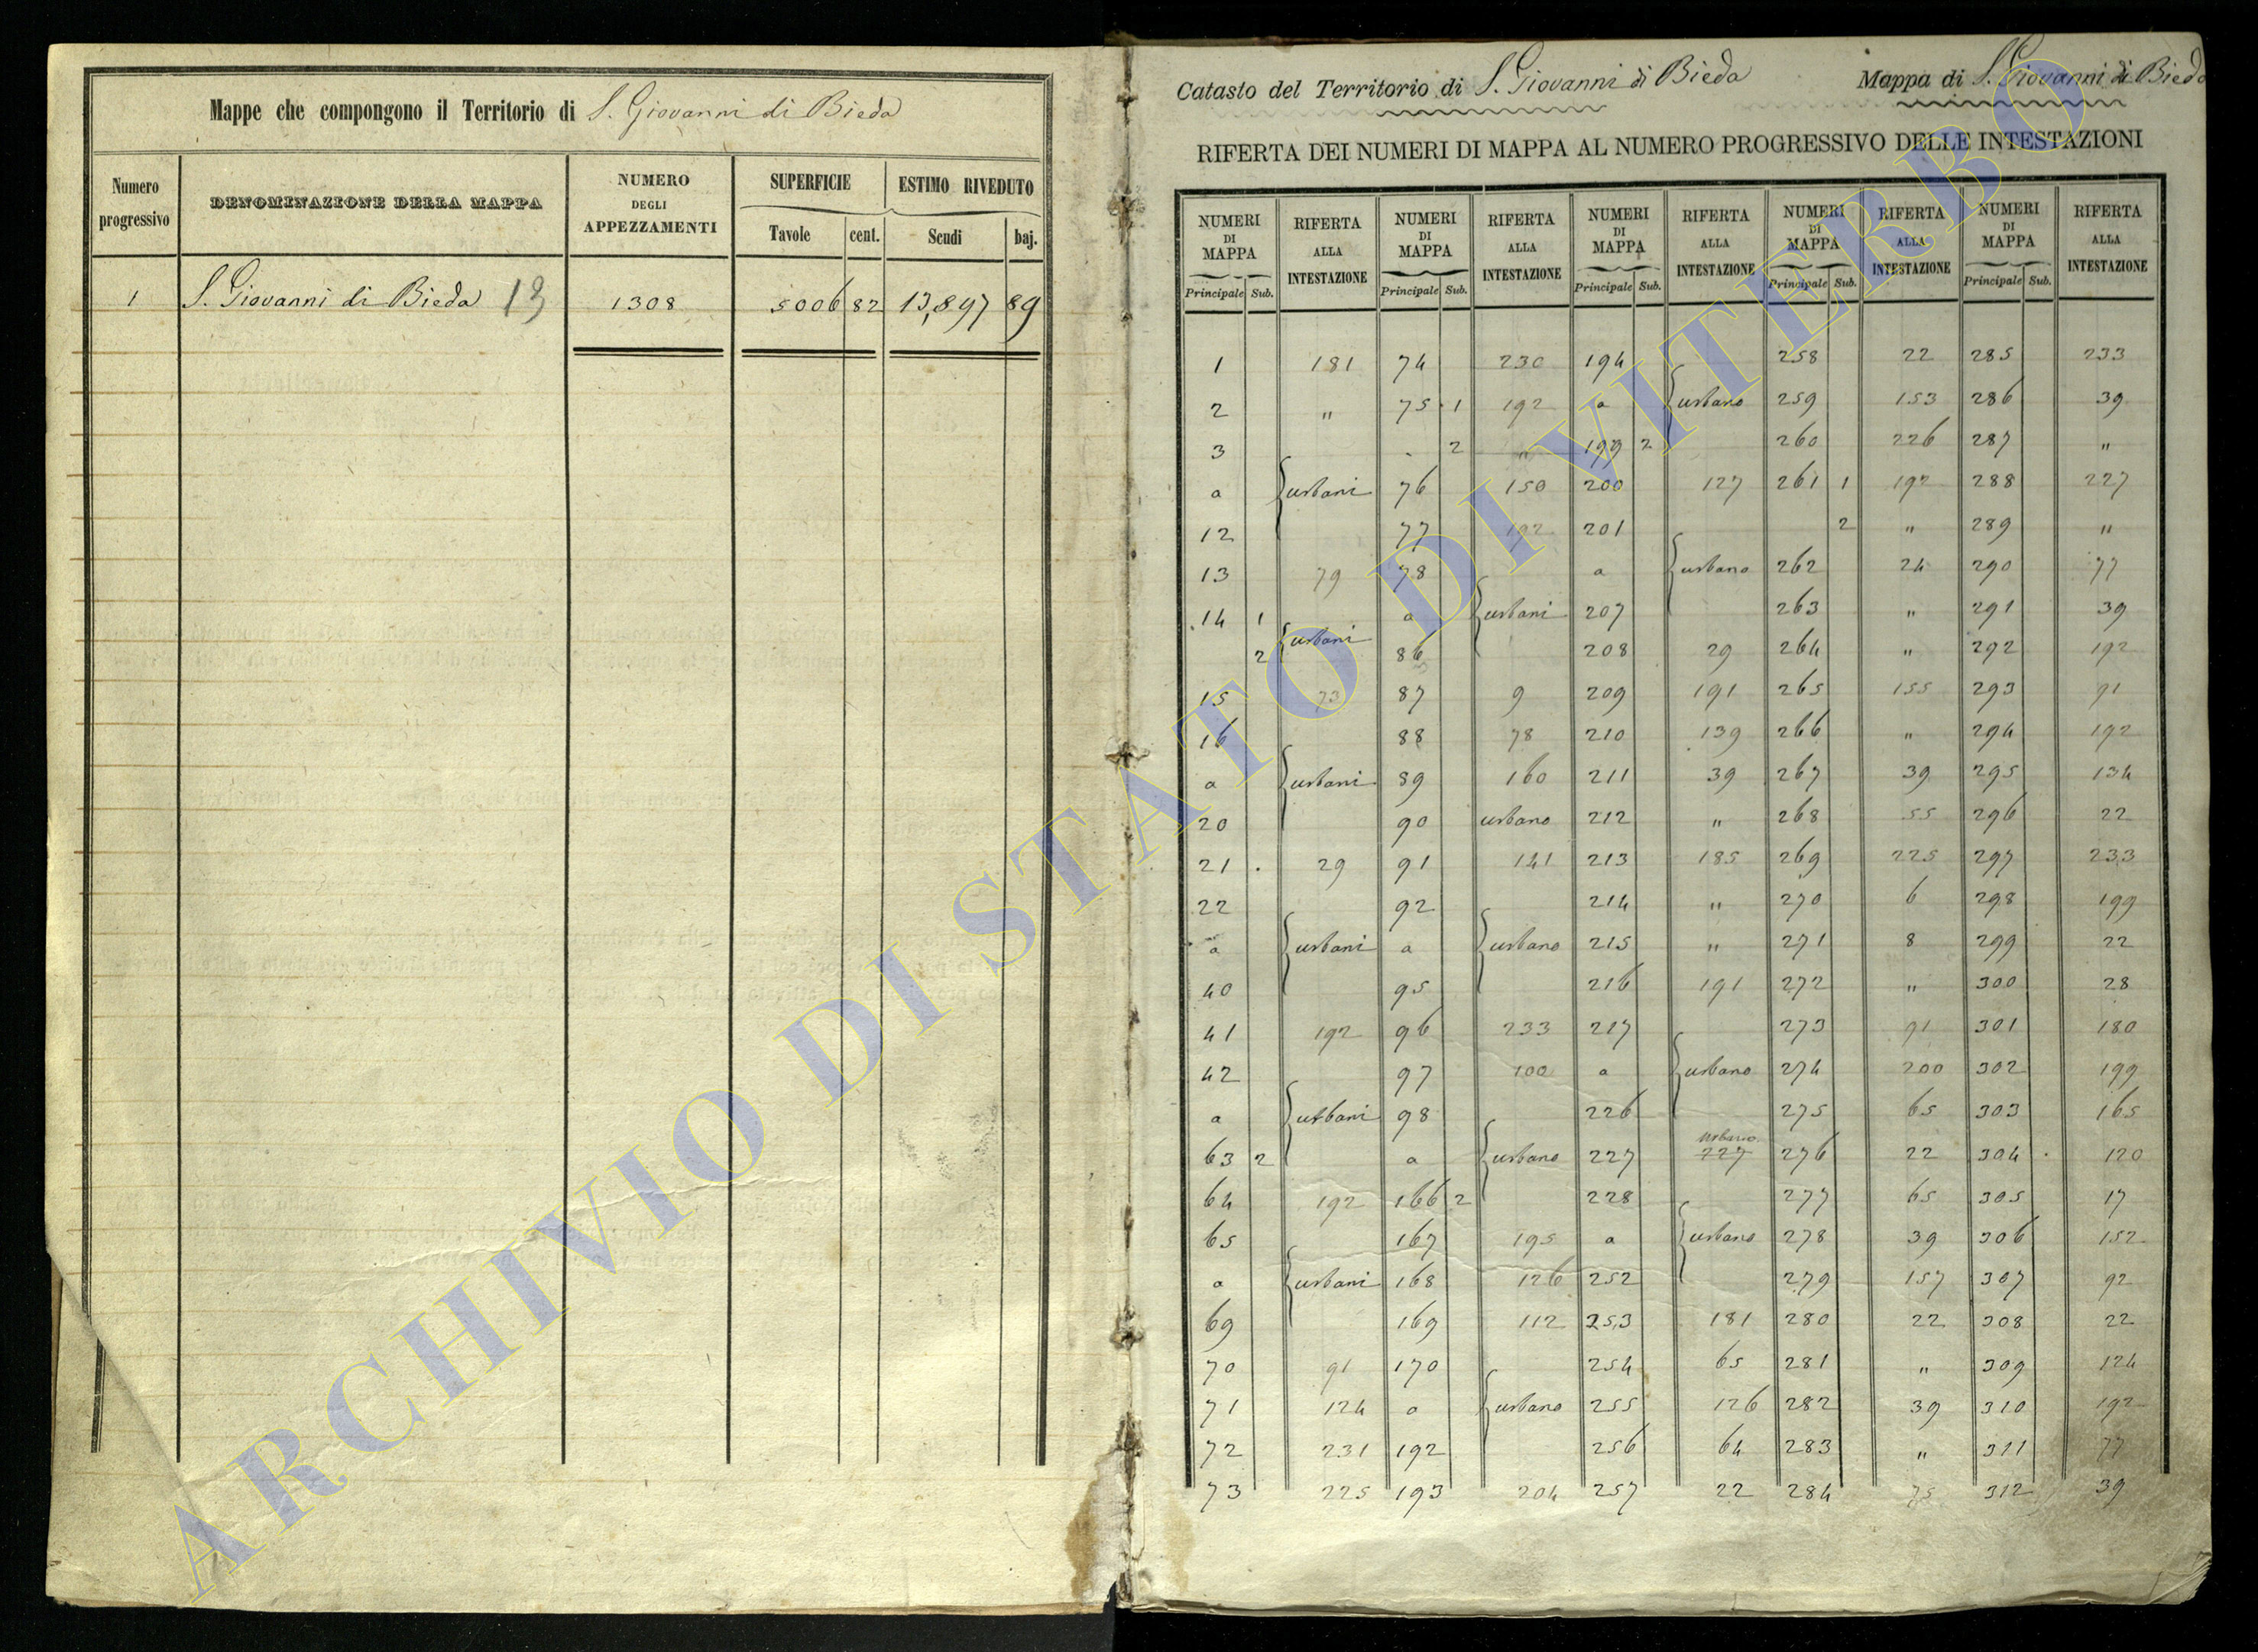 Mappe che compongono il Territorio di S. Giovanni di Bieda
Numero progressivo
DENOMINAZIONE DELLA MAPPA
NUMERO DEGLI APPEZZAMENTI
SUPERFICIE
ESTIMO RIVEDUTO
Tavole cent. Scudi baj.
1 S. Giovanni di Bieda 13 1308 5006 82 13,897 89
Catasto del Territorio di S. Giovanni di Bieda Mappa di S. Giovanni di Bieda
RIFERTA DEI NUMERI DI MAPPA AL NUMERO PROGRESSIVO DELLE INTESTAZIONI
NUMERI DI MAPPA RIFERTA ALLA INTESTAZIONE NUMERI DI MAPPA RIFERTA ALLA INTESTAZIONE NUMERI DI MAPPA RIFERTA ALLA INTESTAZIONE NUMERI DI MAPPA RIFERTA ALLA INTESTAZIONE NUMERI DI MAPPA RIFERTA ALLA INTESTAZIONE
Principale Sub. Principale Sub. Principale Sub. Principale Sub. Principale Sub.
1 181 74 230 194 258 22 285 233
2 " 75 1 192 a urbano 259 153 286 39
3 2 " 199 2 260 226 287 "
a urbani 76 150 200 127 261 1 192 288 227
12 77 192 201 2 " 289 "
13 79 78 a urbano 262 24 290 77
14 1 a urbani 207 263 " 291 39
2 urbani 86 208 29 264 " 292 192
15 73 87 9 209 191 265 155 293 91
16 88 78 210 139 266 " 294 192
a urbani 89 160 211 39 267 39 295 134
20 90 urbano 212 " 268 55 296 22
21 29 91 141 213 185 269 225 297 233
22 92 214 " 270 6 298 199
a urbani a urbano 215 " 271 8 299 22
40 95 216 191 272 " 300 28
41 192 96 233 217 273 91 301 180
42 97 100 a urbano 274 200 302 199
a urbani 98 226 275 65 303 165
63 2 a urbano 227 urbano 227 276 22 304 120
64 192 166 2 228 277 65 305 17
65 167 195 a urbano 278 39 306 152
a urbani 168 126 252 279 157 307 92
69 169 112 253 181 280 22 308 22
70 91 170 254 65 281 " 309 124
71 124 a urbano 255 126 282 39 310 192
72 231 192 256 64 283 " 311 77
73 225 193 204 257 22 284 75 312 39
ARCHIVIO DI STATO DI VITERBO